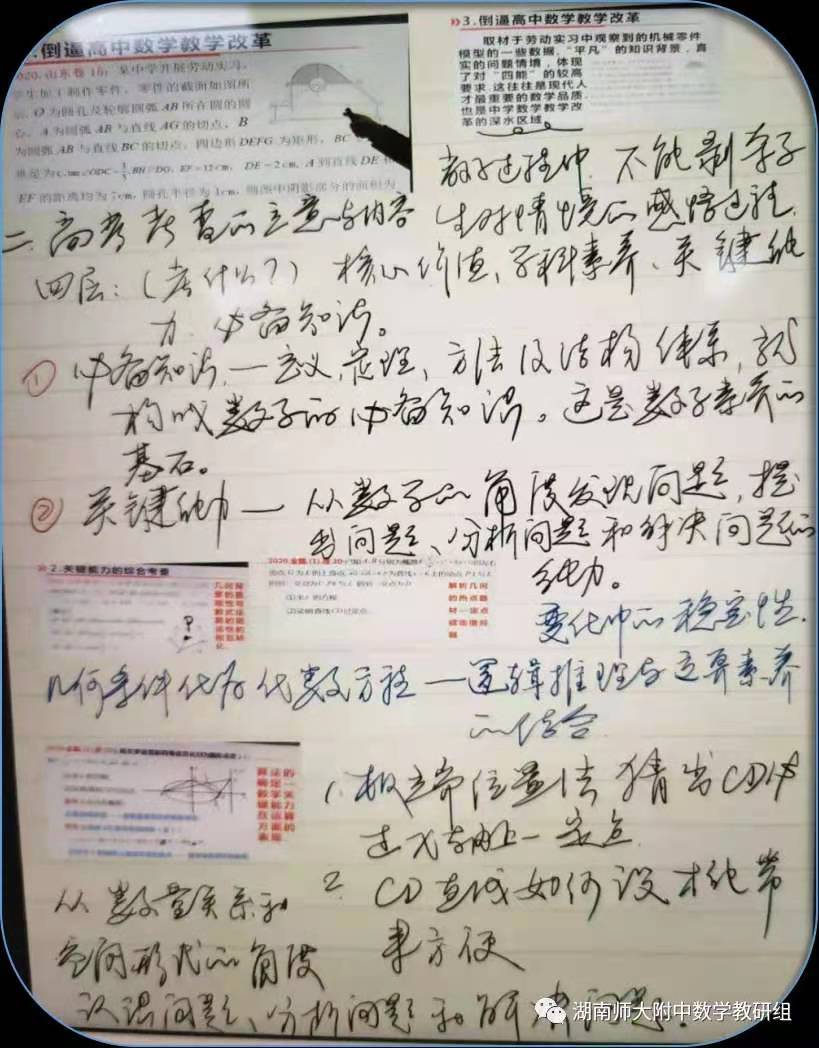 .倒逼高中数学教学改革
020.山东卷15）某中学开展劳动实习，
学生加工制作零件，零件的截面如图所
示．O为圆孔及轮廓圆弧AB所在圆的圆
心，A为圆弧AB与直线AG的切点，B
为圆弧AB与直线BC的切点，四边形DEFG为矩形，BC
垂足为C，tan∠ODC=3/5，BH//DG，EF=12cm，DE=2cm，A到直线DE和
EF的距离均为7cm，圆孔半径为1cm，则图中阴影部分的面积为
3.倒逼高中数学教学改革
取材于劳动实习中观察到的机械零件
模型的一些数据，“平凡”的知识背景，真
实的问题情境，体现
了对“四能”的较高
要求.这往往是现代人
才最重要的数学品质，
也是中学数学教学改
革的深水区域.
教学过程中，不能剥夺学
生对情境的感悟过程.
二.高考考查的立意与内容
四层：（考什么？）核心价值、学科素养、关键能
力、必备知识。
① 必备知识.—定义，定理，方法及结构体系，就
构成数学的必备知识。这是数学素养的
基石。
② 关键能力— 从数学的角度发现问题，提
出问题、分析问题和解决问题的
能力。
2.关键能力的综合考查
解析几何
的热点题
材—定点
变化中的稳定性.
几何条件化为代数方程—逻辑推理与运算素养
的结合
算法的
1.极端位置法猜出CD必
过x轴上一定点.
2. CD直线如何设才能带
来方便
从数量关系和
空间形式的角度
认识问题、分析问题和解决问题.
湖南师大附中数学教研组